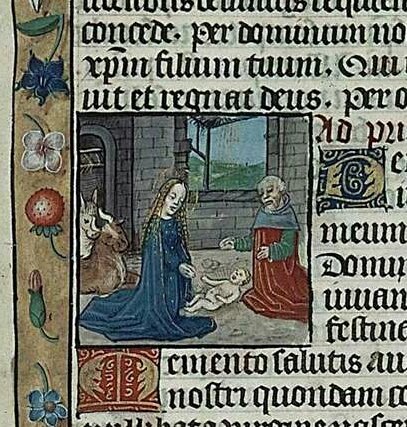 concede. Per dominum no
xpm filium tuum. Qui
uit et regnat deus. Per o
Ad pri
De
meum
Domi
iuuan
festina
Memento salutis au
nostri quondam co